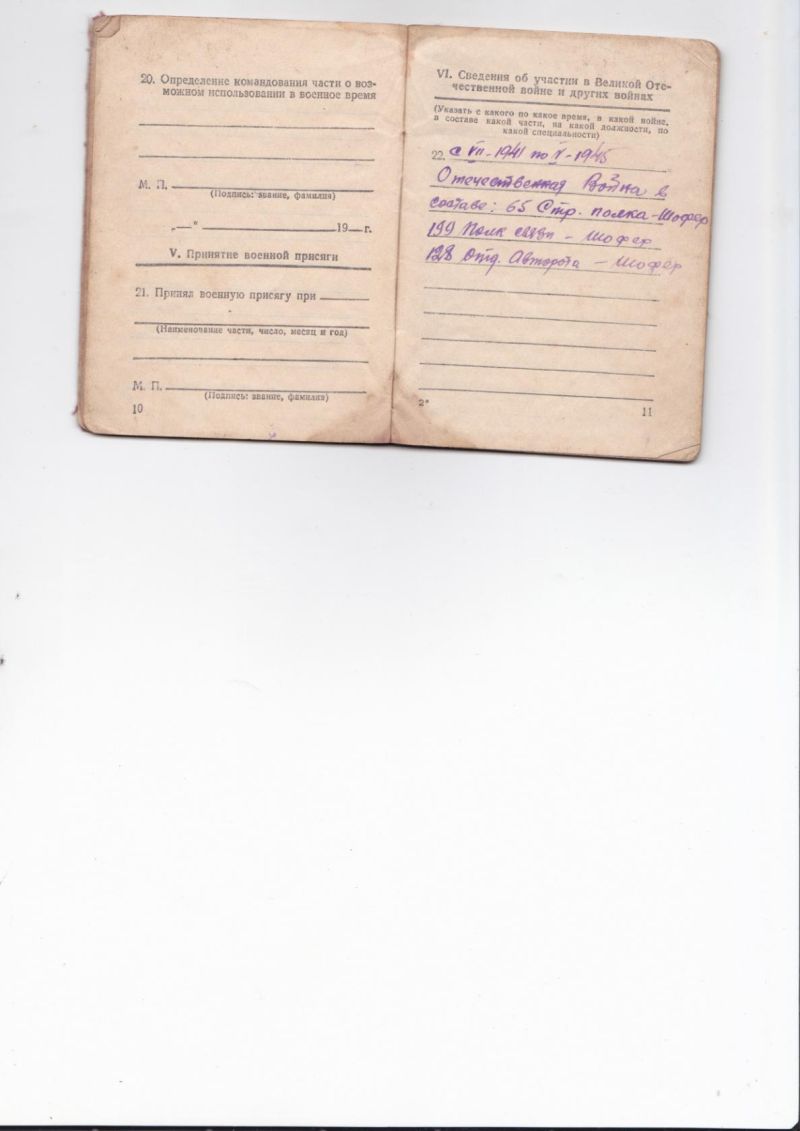 20. Определение командования части о воз-
можном использовании в военное время
М. П.
(Подпись: звание, фамилия)
„—“ 19—г.
V. Принятие военной присяги
21. Принял военную присягу при
(Наименование части, число, месяц и год)
М. П.
(Подпись: звание, фамилия)
10
VI. Сведения об участии в Великой Оте-
чественной войне и других войнах
(Указать с какого по какое время, в какой войне,
в составе какой части, на какой должности, по
какой специальности)
22. с VII-1941 по V-1945
Отечественная Война в
составе: 65 Стр. полка-Шофер
199 Полк связи - Шофер
128 Отд. Авторота - Шофер
2*
11